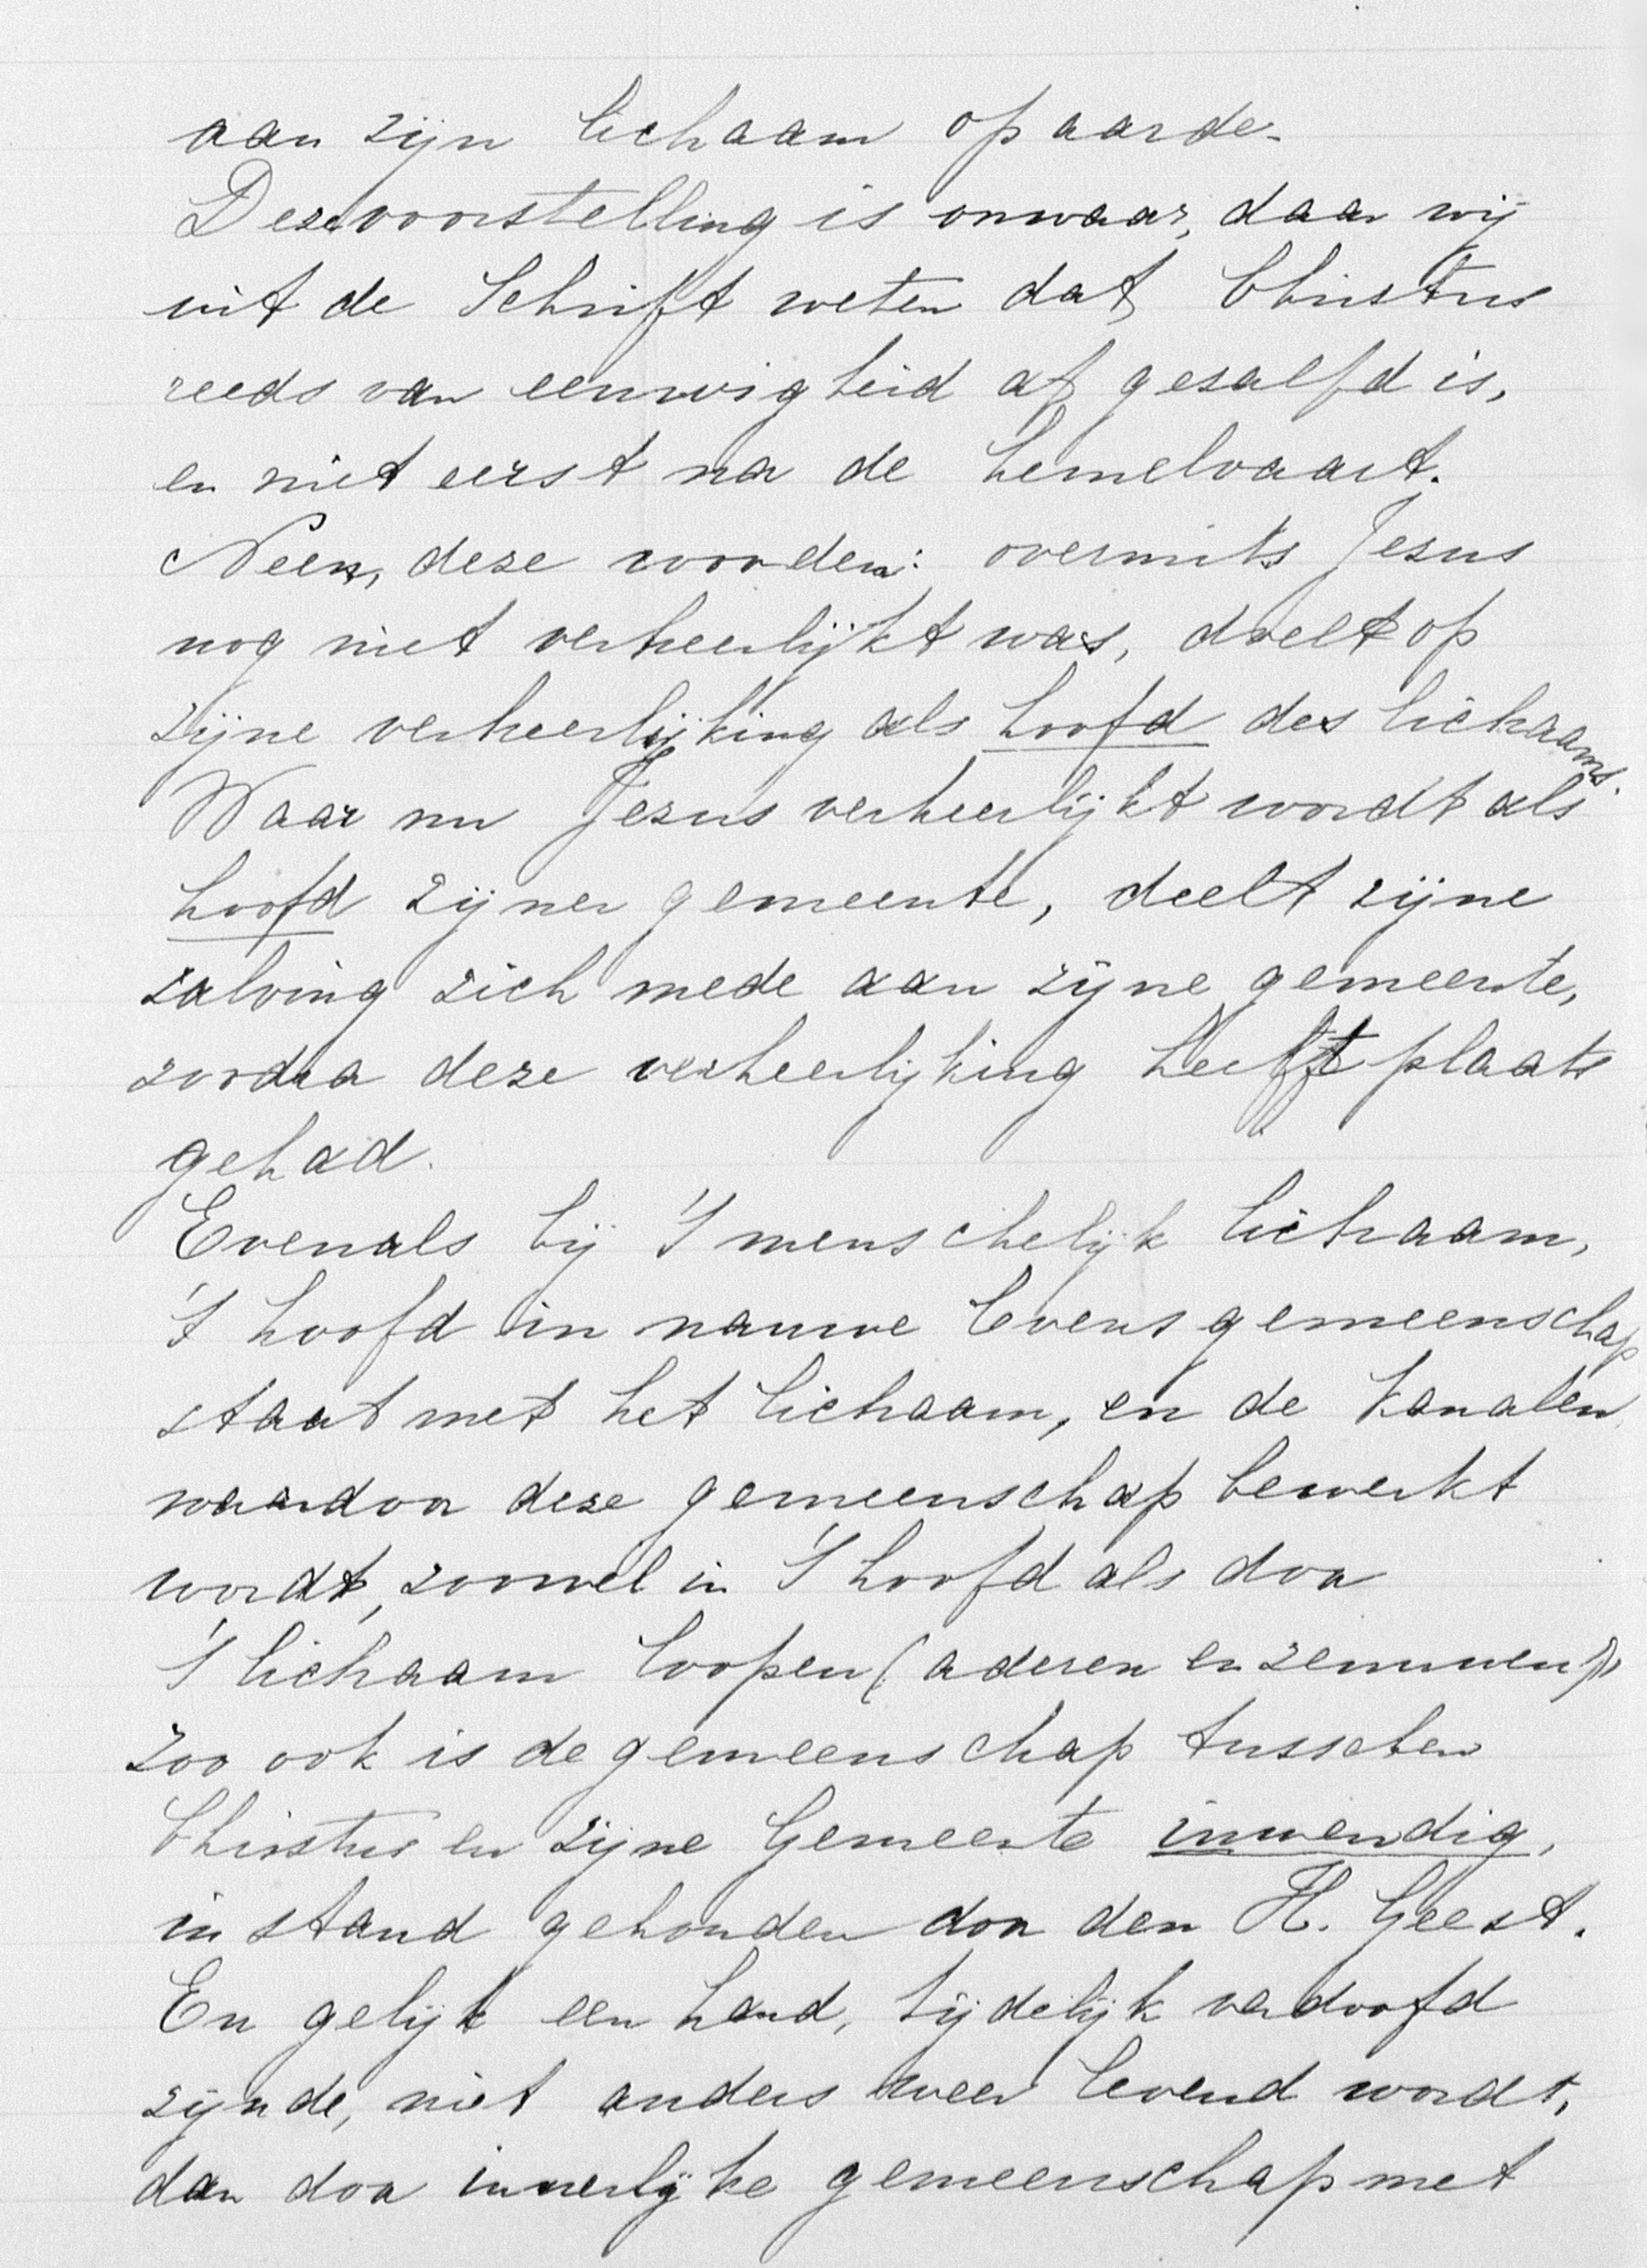 aan zijn lichaam op aarde.
Deze voorstelling is onwaar, daar wij
uit de Schrift weten dat Christus
reeds van eeuwigheid af gezalfd is,
en niet eerst na de hemelvaart.
Neen, deze woorden: overmits Jezus
nog niet verheerlijkt was, doelt op
zijne verheerlijking als hoofd des lichaams.
Waar nu Jezus verheerlijkt wordt als
hoofd zijner gemeente, deelt zijne
zalving zich mede aan zijne gemeente,
zoodra deze verheerlijking heeft plaats
gehad.
Evenals bij 't menschelijk lichaam,
't hoofd in nauwe levensgemeenschap
staat met het lichaam, en de kanalen
waardoor deze gemeenschap bewerkt
wordt, zoowel in 't hoofd als door
't lichaam loopen (aderen en zenuwen)
zoo ook is de gemeenschap tusschen
Christus en zijne Gemeente inwendig,
in stand gehouden door den H. Geest.
En gelijk een hand, tijdelijk verdoofd
zijnde, niet anders weer levend wordt,
dan door innerlijke gemeenschap met